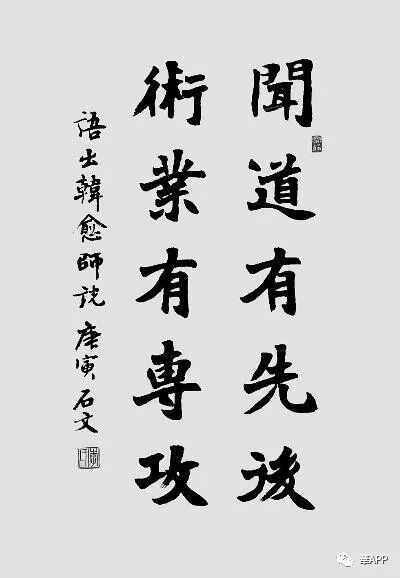 聞道有先後
術業有專攻
語出韓愈師説 庚寅 石文
華APP